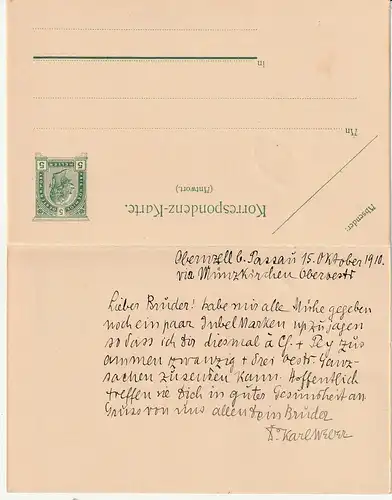 in
An
5 5
HELLER HELLER
Korrespondenz-Karte.
(Antwort.)
Absender:
Obernzell b. Passau 15. Oktober 1910.
via Münzkirchen Oberöestr
Lieber Bruder! habe mir alle Mühe gegeben
noch ein paar Jubel Marken aufzujagen
so dass ich Dir diesmal à Cf. +
ammen zwanzig + drei oestr. Ganz-
sachen zusenden kann. Hoffentlich
treffen sie Dich in guter Gesundheit an
Gruss von uns allen Dein Bruder
Dr Karl Weber